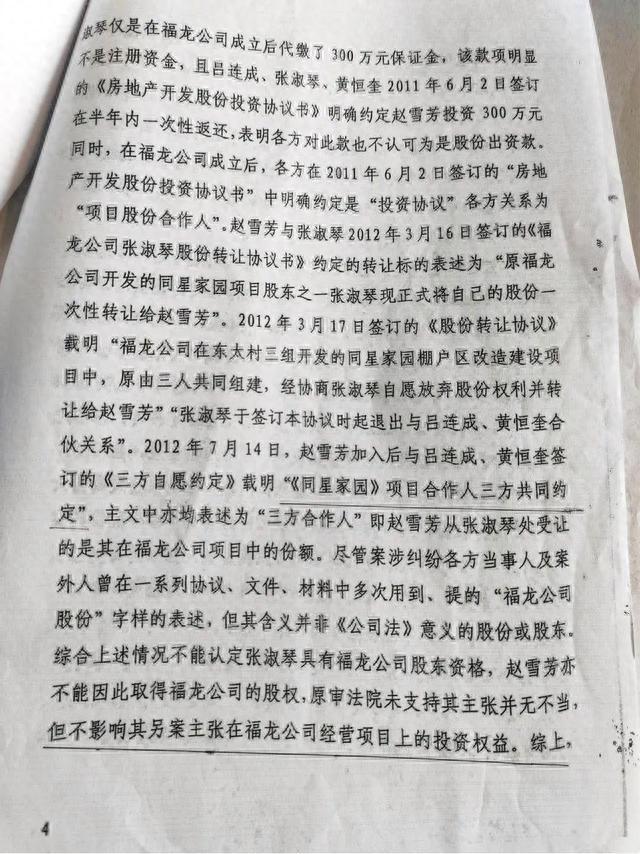 淑琴仅是在福龙公司成立后代缴了 300 万元保证金，该款项明显
不是注册资金，且吕连成、张淑琴、黄恒奎 2011 年 6 月 2 日签订
的《房地产开发股份投资协议书》明确约定赵雪芳投资 300 万元
在半年内一次性返还，表明各方对此款也不认可为是股份出资款。
同时，在福龙公司成立后，各方在 2011 年 6 月 2 日签订的“房地
产开发股份投资协议书”中明确约定是“投资协议”各方关系为
“项目股份合作人”。赵雪芳与张淑琴 2012 年 3 月 16 日签订的《福
龙公司张淑琴股份转让协议书》约定的转让标的表述为“原福龙
公司开发的同星家园项目股东之一张淑琴现正式将自己的股份一
次性转让给赵雪芳”。2012 年 3 月 17 日签订的《股份转让协议》
载明“福龙公司在东太村三组开发的同星家园棚户区改造建设项
目中，原由三人共同组建，经协商张淑琴自愿放弃股份权利并转
让给赵雪芳”“张淑琴于签订本协议时起退出与吕连成、黄恒奎合
伙关系”。2012 年 7 月 14 日，赵雪芳加入后与吕连成、黄恒奎签
订的《三方自愿约定》载明“《同星家园》项目合作人三方共同约
定”，主文中亦均表述为“三方合作人”即赵雪芳从张淑琴处受让
的是其在福龙公司项目中的份额。尽管案涉纠纷各方当事人及案
外人曾在一系列协议、文件、材料中多次用到、提的“福龙公司
股份”字样的表述，但其含义并非《公司法》意义的股份或股东。
综合上述情况不能认定张淑琴具有福龙公司股东资格，赵雪芳亦
不能因此取得福龙公司的股权，原审法院未支持其主张并无不当，
但不影响其另案主张在福龙公司经营项目上的投资权益。综上，
4